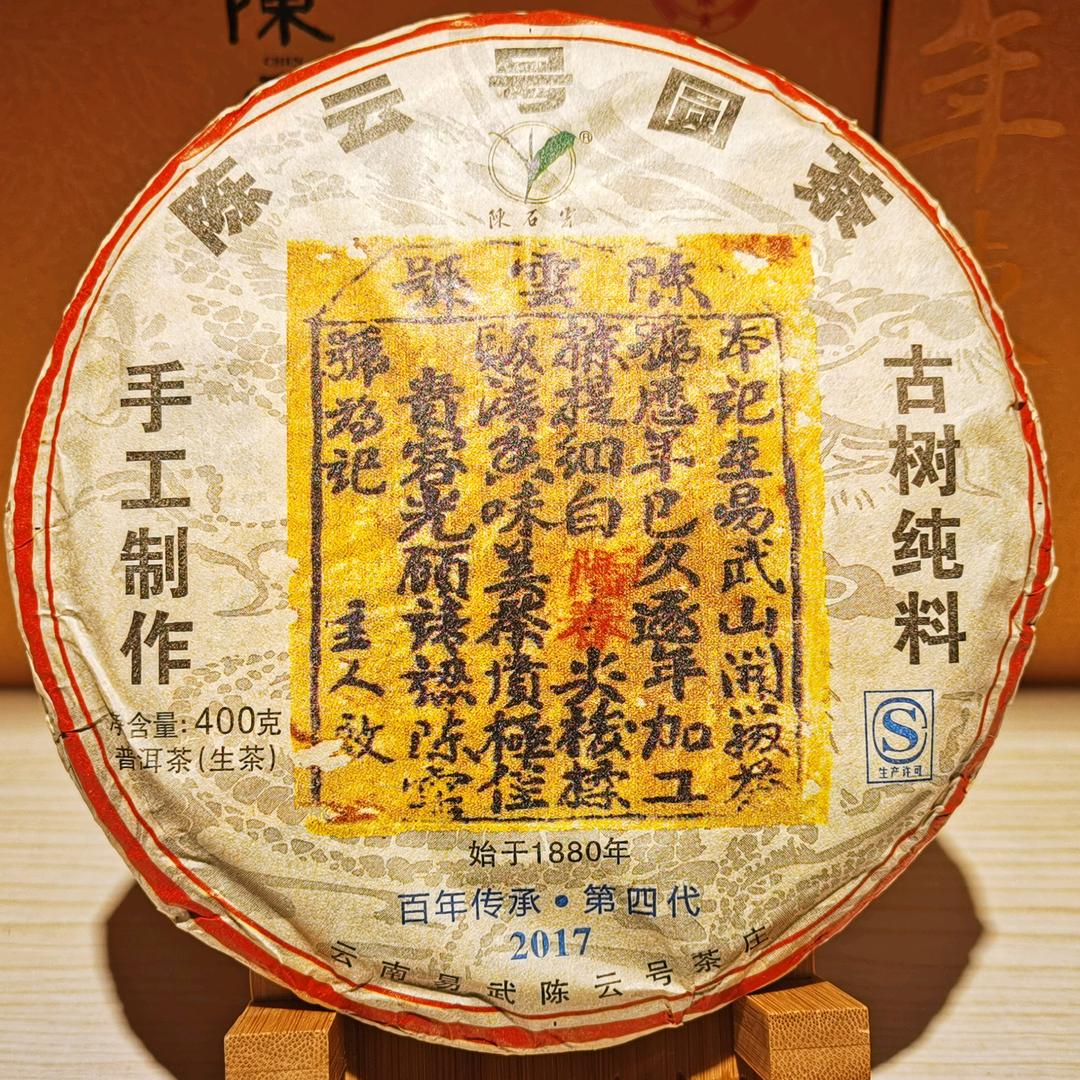 陳
CHEN
年
陈云号圆茶
®
陳石
陳雲號
本記至易武山開
號歷年已久逐年加工
提細白尖 揉
味美 極佳
貴客光顧請認陳雲
號為記 主人啟
古树纯料
手工制作
净含量:400克
普洱茶(生茶)
S
生产许可
始于1880年
百年传承·第四代
2017
云南易武陈云号茶庄